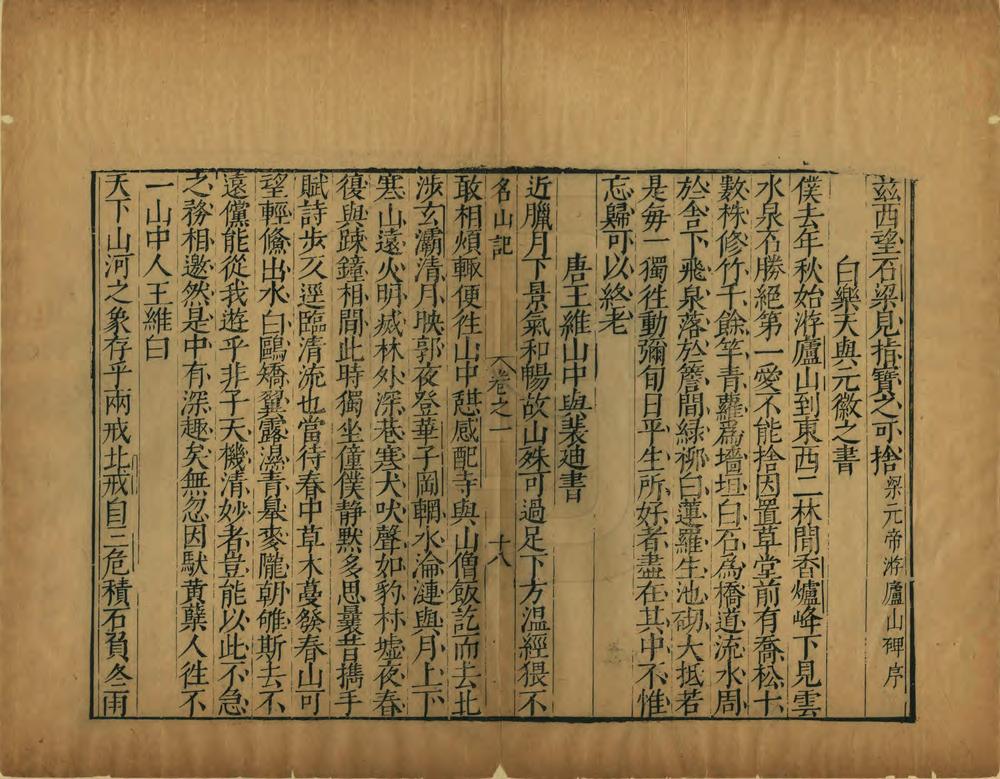 茲西望石梁見指寶之可捨梁元帝游廬山碑序
白樂天與元微之書
僕去年秋始游廬山到東西二林間香爐峰下見雲
水泉石勝絕第一愛不能捨因置草堂前有喬松十
數株修竹千餘竿青蘿為墻垣白石為橋道流水周
於舍下飛泉落於簷間綠柳白蓮羅生池砌大抵若
是每一獨往動彌旬日平生所好者盡在其中不惟
忘歸可以終老
唐王維山中與裴迪書
近臘月下景氣和暢故山殊可過足下方溫經猥不
名山記 卷之一 十八
敢相煩輙便往山中憇感配寺與山僧飯訖而去北
涉玄灞清月映郭夜登華子岡輞水淪漣與月上下
寒山遠火明滅林外深巷寒犬吠聲如豹村墟夜舂
復與踈鐘相間此時獨坐僮僕静默多思曩昔携手
賦詩步仄逕臨清流也當待春中草木蔓發春山可
望輕鯈出水白鷗矯翼露濕青皋麥隴朝雊斯去不
遠儻能從我遊乎非子天機清妙者豈能以此不急
之務相邀然是中有深趣矣無忽因馱黃蘗人往不
一山中人王維白
天下山河之象存乎兩戒北戒自三危積石負冬雨